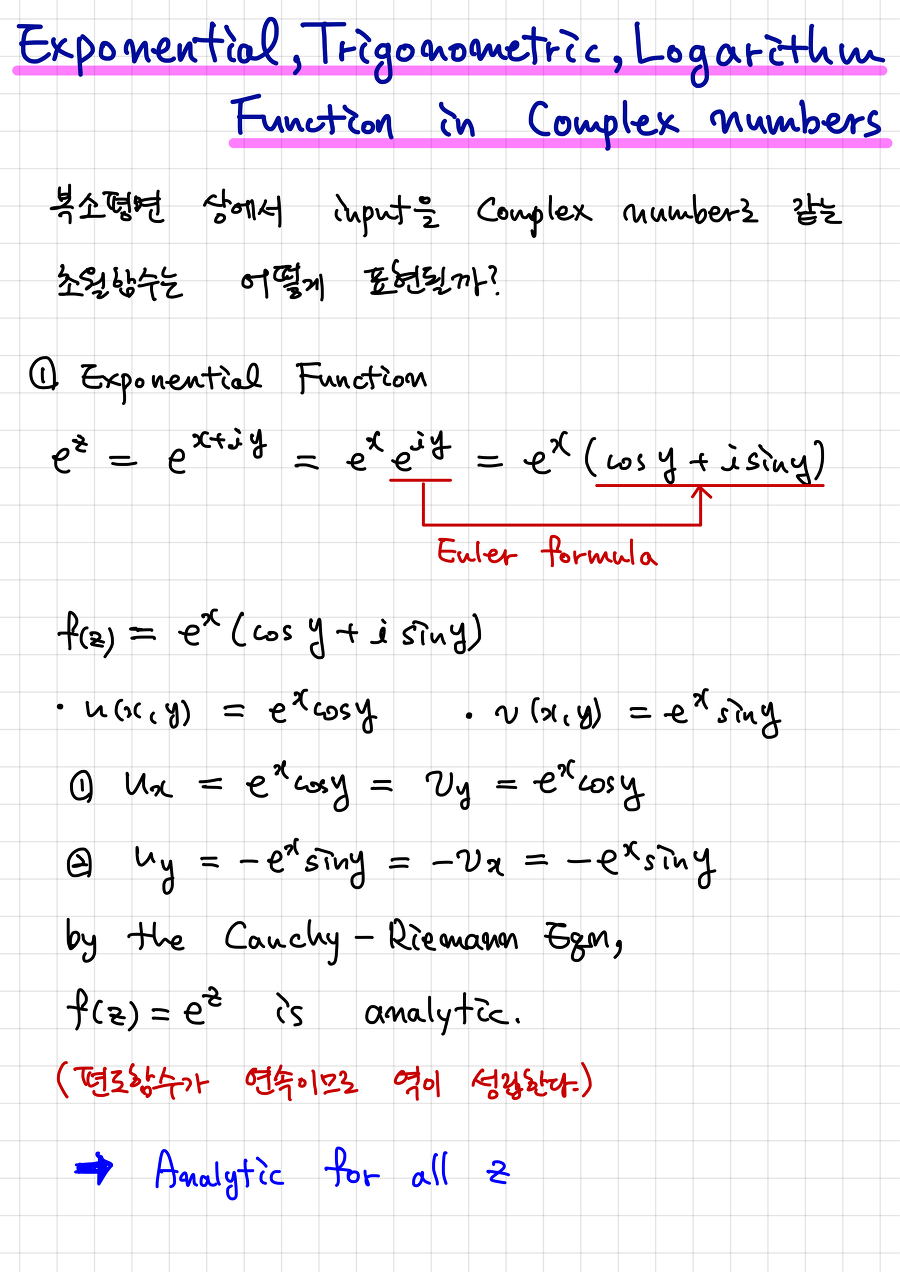 Exponential, Trigonometric, Logarithm
Function in Complex numbers
복소평면 상에서 input을 Complex number로 같는
초월함수는 어떻게 표현될까?
① Exponential Function
e^z = e^{x+iy} = e^x e^{iy} = e^x (cos y + i sin y)
Euler formula
f(z) = e^x (cos y + i sin y)
· u(x, y) = e^x cos y · v(x, y) = e^x sin y
① u_x = e^x cos y = v_y = e^x cos y
② u_y = -e^x sin y = -v_x = -e^x sin y
by the Cauchy - Riemann Eqn,
f(z) = e^z is analytic.
(편도함수가 연속이므로 역이 성립한다.)
➡ Analytic for all z